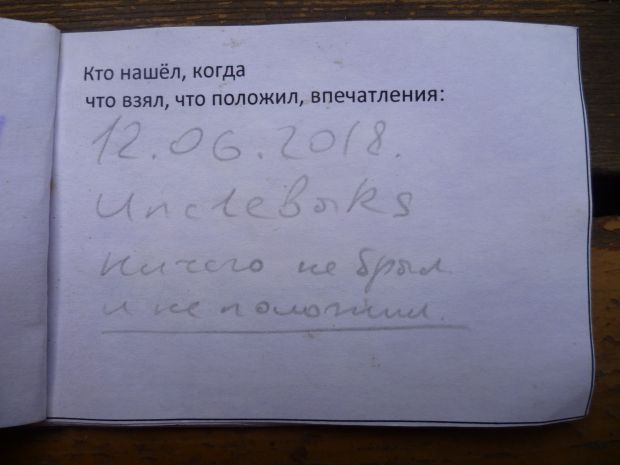 Кто нашёл, когда
что взял, что положил, впечатления:
12.06.2018.
UncleBorks
ничего не брал
и не положил.